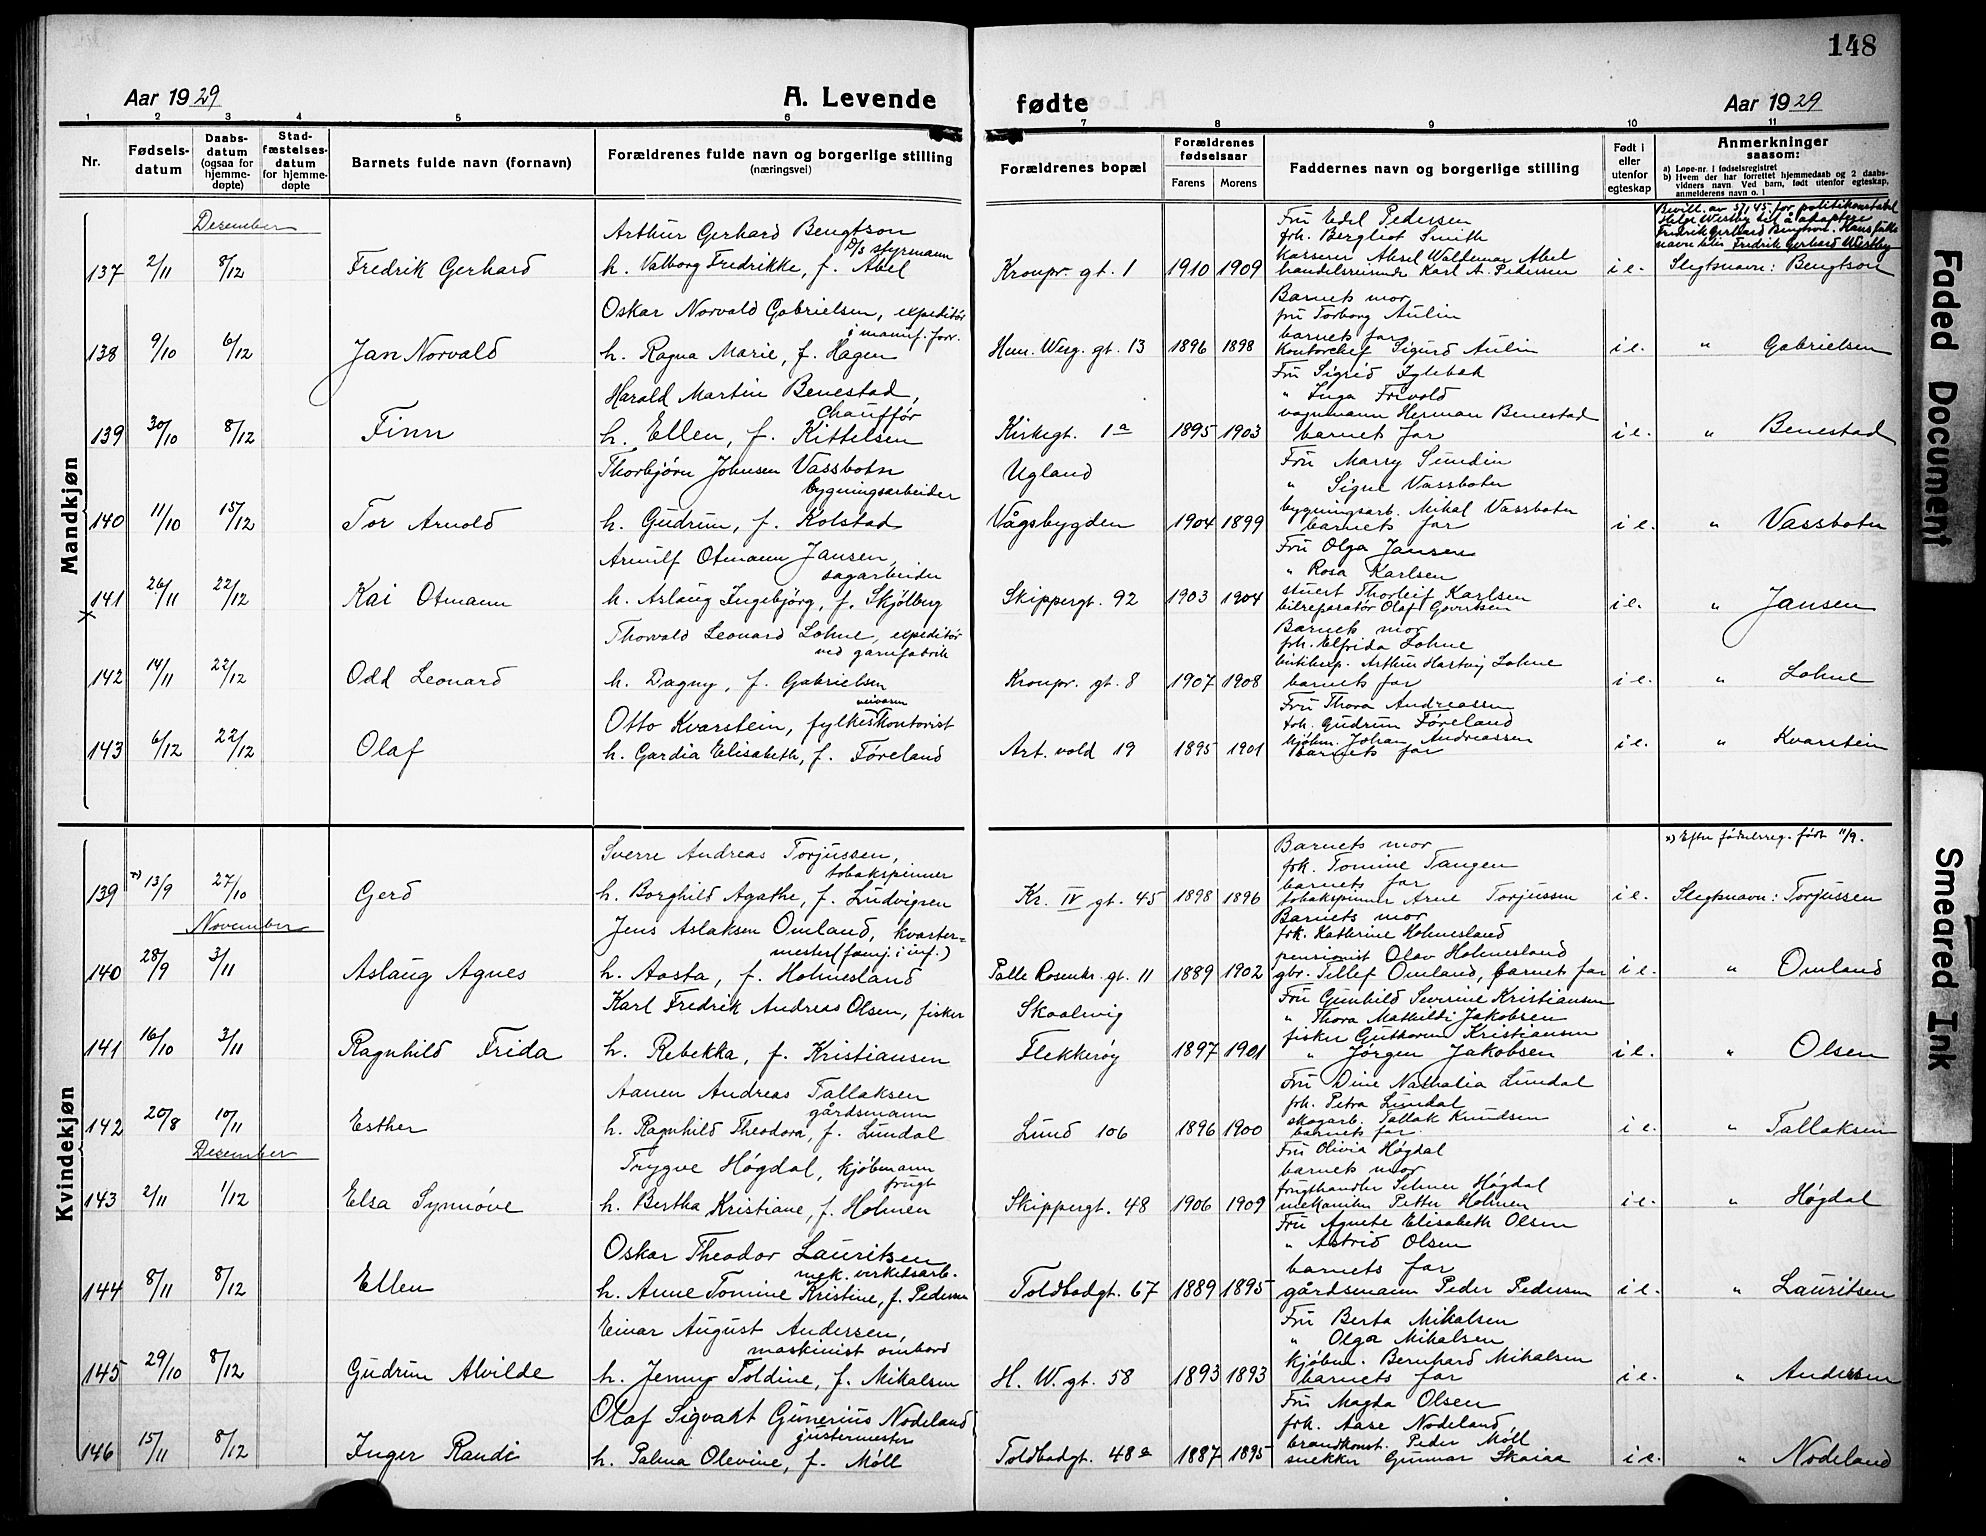 148
Aar 1929
A. Levende
fødte
Aar 1929
1 2 3 4 5 6 7 8 9 10 11
Nr.
Fødselsdatum
Daabsdatum (ogsaa for hjemmedøpte)
Stadfæstelsesdatum for hjemmedøpte
Barnets fulde navn (fornavn)
Forældrenes fulde navn og borgerlige stilling (næringsvei)
Forældrenes bopæl
Forældrenes fødselsaar
Farens Morens
Faddernes navn og borgerlige stilling
Født i eller utenfor egteskap
Anmerkninger saasom:
a) Løpe-nr. i fødselsregistret
b) Hvem der har forrettet hjemmedaab og 2 daabsvidners navn. Ved barn, født utenfor egteskap, anmelderens navn o. l
Mandkjøn
Desember
137 2/11 8/12 Fredrik Gerhard
Arthur Gerhard Bengtson
D/s styrmann
h. Valborg Fredrikke, f. Abel
Kronpr. gt. 1 1910 1909
Fru Edel Pedersen
frk. Bergliot Smith
kasserer Aksel Waldemar Abel
handelsreisende Karl A. Pedersen
i e.
Bevill. av 5/1 45 for politikonstabel
Helge Westby til å adoptere
Fredrik Gerhard Bengtson. Hans fulle
navn blir Fredrik Gerhard Westby
Slegtsnavn: Bengtson
138 9/10 6/12 Jan Norvald
Oskar Norvald Gabrielsen, expeditør
i manuf. forr.
h. Ragna Marie, f. Hagen
Hen. Werg. gt. 13 1896 1898
Barnets mor
fru Torborg Aulin
barnets far
Kontorchef Sigurd Aulin
i e. " Gabrielsen
139 30/10 8/12 Finn
Harald Martin Benestad,
chauffør
h. Ellen, f. Kittelsen
Kirkegt. 1a 1895 1903
Fru Sigrid Fylebak
" Inga Frivold
vognmann Herman Benestad
barnets far
i e. " Benestad
140 11/10 15/12 Tor Arnold
Thorbjørn Johnsen Vassbotn
bygningsarbeider
h. Gudrun, f. Kolstad
Ugland
Vågsbygden 1904 1899
Fru Marry Sundin
" Signe Vassbotn
bygningsarb. Mikal Vassbotn
barnets far
i e. " Vassbotn
141 26/11 22/12 Kai Otmann
Arnulf Otmann Jansen,
sagarbeider
h. Aslaug Ingebjørg, f. Skjølberg
Skippergt. 92 1903 1904
Fru Olga Jansen
" Rosa Karlsen
stuert Thorleif Karlsen
bilreparatør Olaf Govertsen
i e. " Jansen
142 14/11 22/12 Odd Leonard
Thorvald Leonard Lohne, expeditør
ved garnfabrik
h. Dagny, f. Gabrielsen
Kronpr. gt. 8 1907 1908
Barnets mor
frk. Elfrida Lohne
butikexp. Arthur Hartvig Lohne
barnets far
i e. " Lohne
143 6/12 22/12 Olaf
Otto Kvarstein, fylkesveivesen kontorist
h. Gardia Elisabeth, f. Føreland
Art. vold 19 1895 1901
Fru Thora Andreassen
frk. Gudrun Føreland
kjøbm. Johan Andreassen
barnets far
i e. " Kvarstein
Kvindekjøn
139 x) 13/9 27/10 Gerd
Sverre Andreas Torjussen,
tobakspinner
h. Borghild Agathe, f. Ludvigsen
Kr. IV gt. 45 1898 1896
Barnets mor
frk. Tomine Tangen
barnets far
tobakspinner Arne Torjussen
i e.
x) Efter fødselsreg. født 11/9.
Slegtsnavn: Torjussen
November
140 28/9 3/11 Aslaug Agnes
Jens Aslaksen Omland, kvarter-
mester (fanj. i inf.)
h. Aasta, f. Holmesland
Palle Rosenkr. gt. 11 1889 1902
Barnets mor
frk. Kathrine Holmesland
pensionist Olav Holmesland
gbr. Tellef Omland, barnets far
i e. " Omland
141 16/10 3/11 Ragnhild Frida
Karl Fredrik Andreas Olsen, fisker
h. Rebekka, f. Kristiansen
Skaalevig
Flekkerøy 1897 1901
Fru Gunhild Severine Kristiansen
" Thora Mathilde Jakobsen
fisker Guthorm Kristiansen
" Jørgen Jakobsen
i e. " Olsen
142 20/8 10/11 Esther
Aanen Andreas Tallaksen
gårdsmann
h. Ragnhild Theodora, f. Lundal
Lund 106 1896 1900
Fru Dine Nathalia Lundal
frk. Petra Lundal
skogarb. Tallak Knudsen
barnets far.
i e. " Tallaksen
Desember
143 2/11 1/12 Elsa Synnøve
Trygve Høgdal, kjøbmann
frugt
h. Bertha Kristiane, f. Holmen
Skippergt. 48 1906 1909
Fru Olivia Høgdal
barnets mor
frugthandler Selmer Høgdal
mekaniker Petter Holmen
i e. " Høgdal
144 8/11 8/12 Ellen
Oskar Theodor Lauritsen
mek. virketsarb.
h. Anne Tomine Kristine, f. Pedersen
Toldbodgt. 67 1889 1895
Fru Agnete Elisabeth Olsen
" Astrid Olsen
barnets far
gårdsmann Peder Pedersen
i e. " Lauritsen
145 29/10 8/12 Gudrun Alvilde
Einar August Andersen,
maskinist ombord
h. Jenny Toldine, f. Mikalsen
H. W. gt. 58 1893 1893
Fru Berta Mikalsen
" Olga Mikalsen
kjøbm. Bernhard Mikalsen
barnets far
i e. " Andersen
146 15/11 8/12 Inger Randi
Olaf Sigvakt Gunerius Nodeland
justermester
h. Palma Olevine, f. Møll
Toldbodgt. 48a 1887 1895
Fru Magda Olsen
frk. Aase Nodeland
brandkonst. Peder Møll
snekker Gunnar Skaiaa
i e. " Nodeland
Faded Document
Smeared Ink